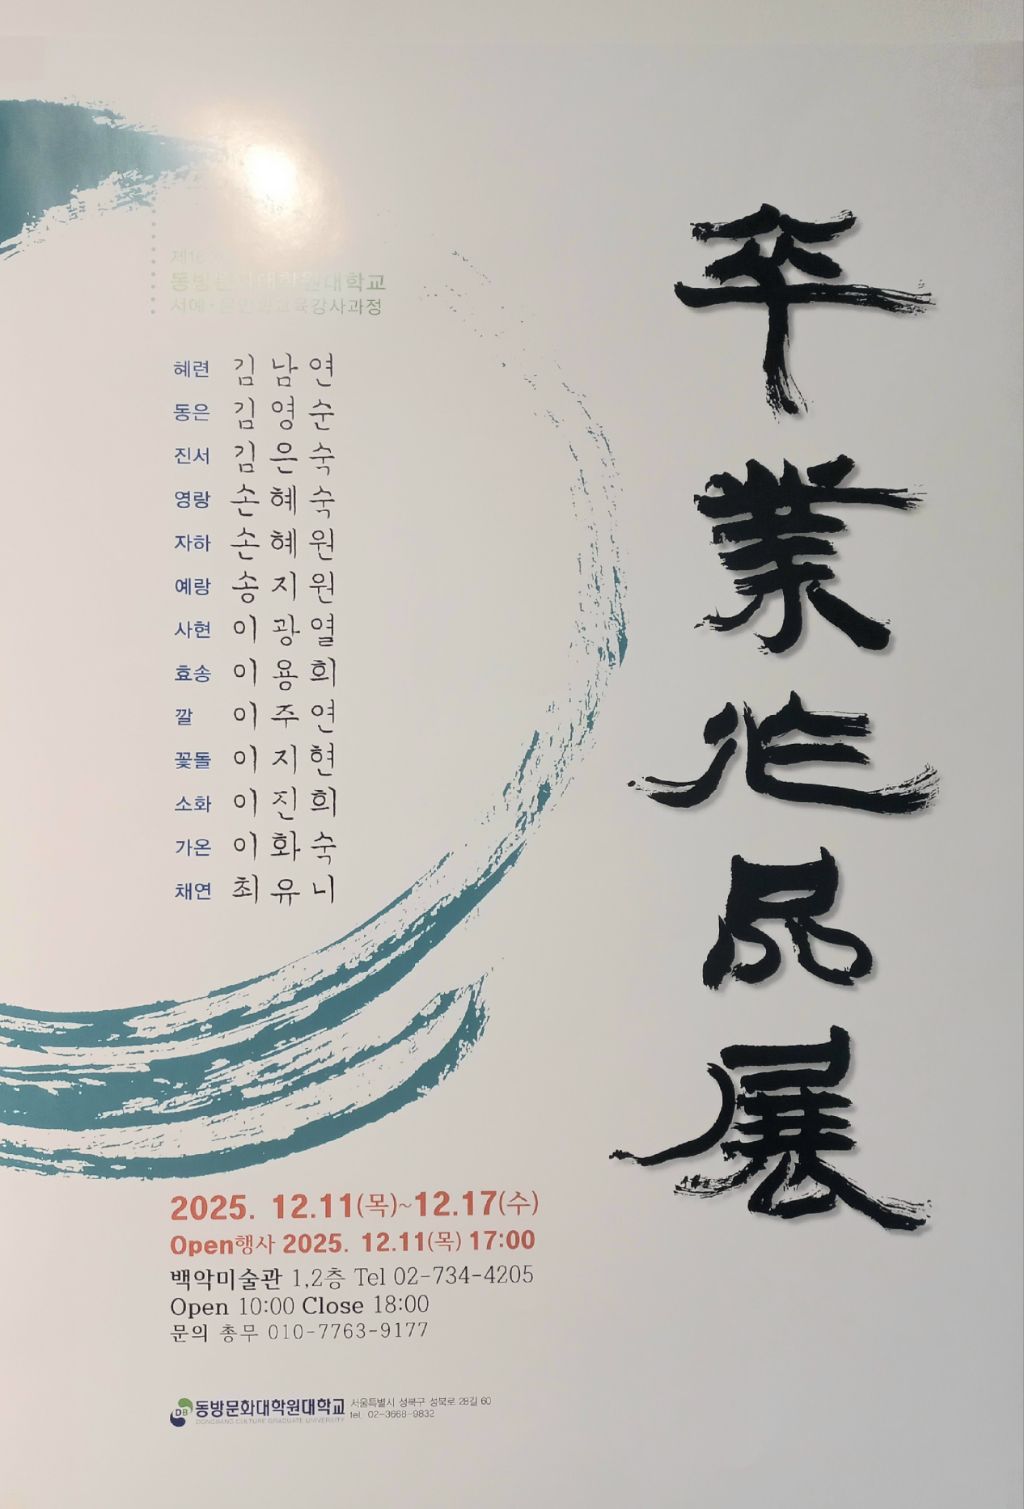 卒業作品展
제16
동방문화대학원대학교
서예·문인화교육강사과정
혜련 김남연
동은 김영순
진서 김은숙
영랑 손혜숙
자하 손혜원
예랑 송지원
사현 이광열
효송 이용희
깔 이주연
꽃돌 이지현
소화 이진희
가온 이화숙
채연 최유니
2025. 12.11(목)~12.17(수)
Open행사 2025. 12.11(목) 17:00
백악미술관 1,2층 Tel 02-734-4205
Open 10:00 Close 18:00
문의 총무 010-7763-9177
DB 동방문화대학원대학교 서울특별시 성북구 성북로 28길 60
DONGBANG CULTURE GRADUATE UNIVERSITY tel. 02-3668-9832